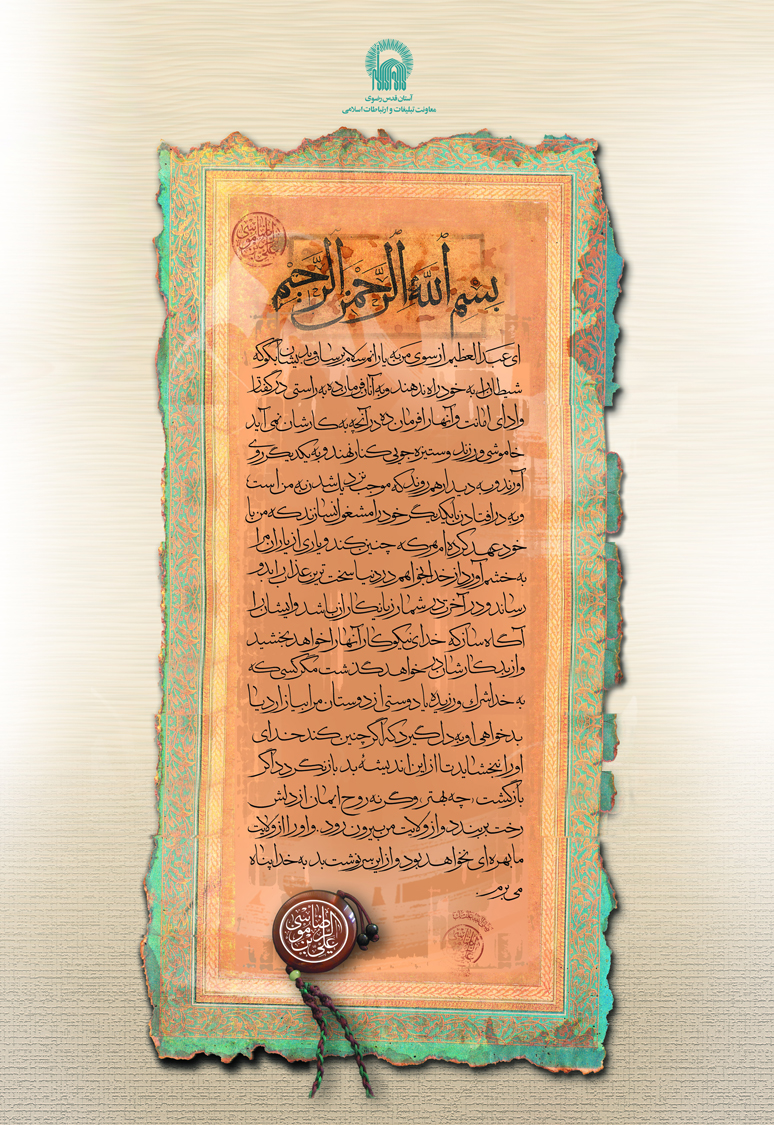 آستان قدس رضوی
معاونت تبلیغات و ارتباطات اسلامی
بسم الله الرحمن الرحیم
ای عبدالعظیم از سوی من به یارانم سلام برسان و بدیشان بگو که
شیطان را به خود راه ندهند و به آنان فرمان ده به راستی در گفتار
و ادای امانت و آنها را فرمان ده در آنچه به کارشان نمی آید
خاموشی ورزند و ستیزه جویی کنار نهند و به یکدیگر روی
آورند و به دیدار هم روند که موجب نزدیک شدن به من است
و به در افتادن با یکدیگر خود را مشغول نسازند که من با
خود عهد کرده ام هر که چنین کند و یاری از یاران مرا
به خشم آورد از خدا بخواهم در دنیا سخت ترین عذاب را بدو
رساند و در آخرت در شمار زیانکاران باشد و ایشان را
آگاه ساز که خدای نیکوکار آنها را خواهد بخشید
و از بدکارشان در خواهد گذشت مگر کسی که
به خدا شرک ورزیده یا دوستی از دوستان مرا بیازارد یا
بدخواهی او به دل گیرد که اگر چنین کند خدای
او را نبخشاید تا از این اندیشهٔ بد بازنگردد اگر
بازگشت، چه بهتر، وگر نه روح ایمان از دلش
رخت بربندد و از ولایت من بیرون رود. و او را از ولایت
ما بهره ای نخواهد بود و از این سرنوشت بد به خدا پناه
می برم.
علی بن موسی الرضا